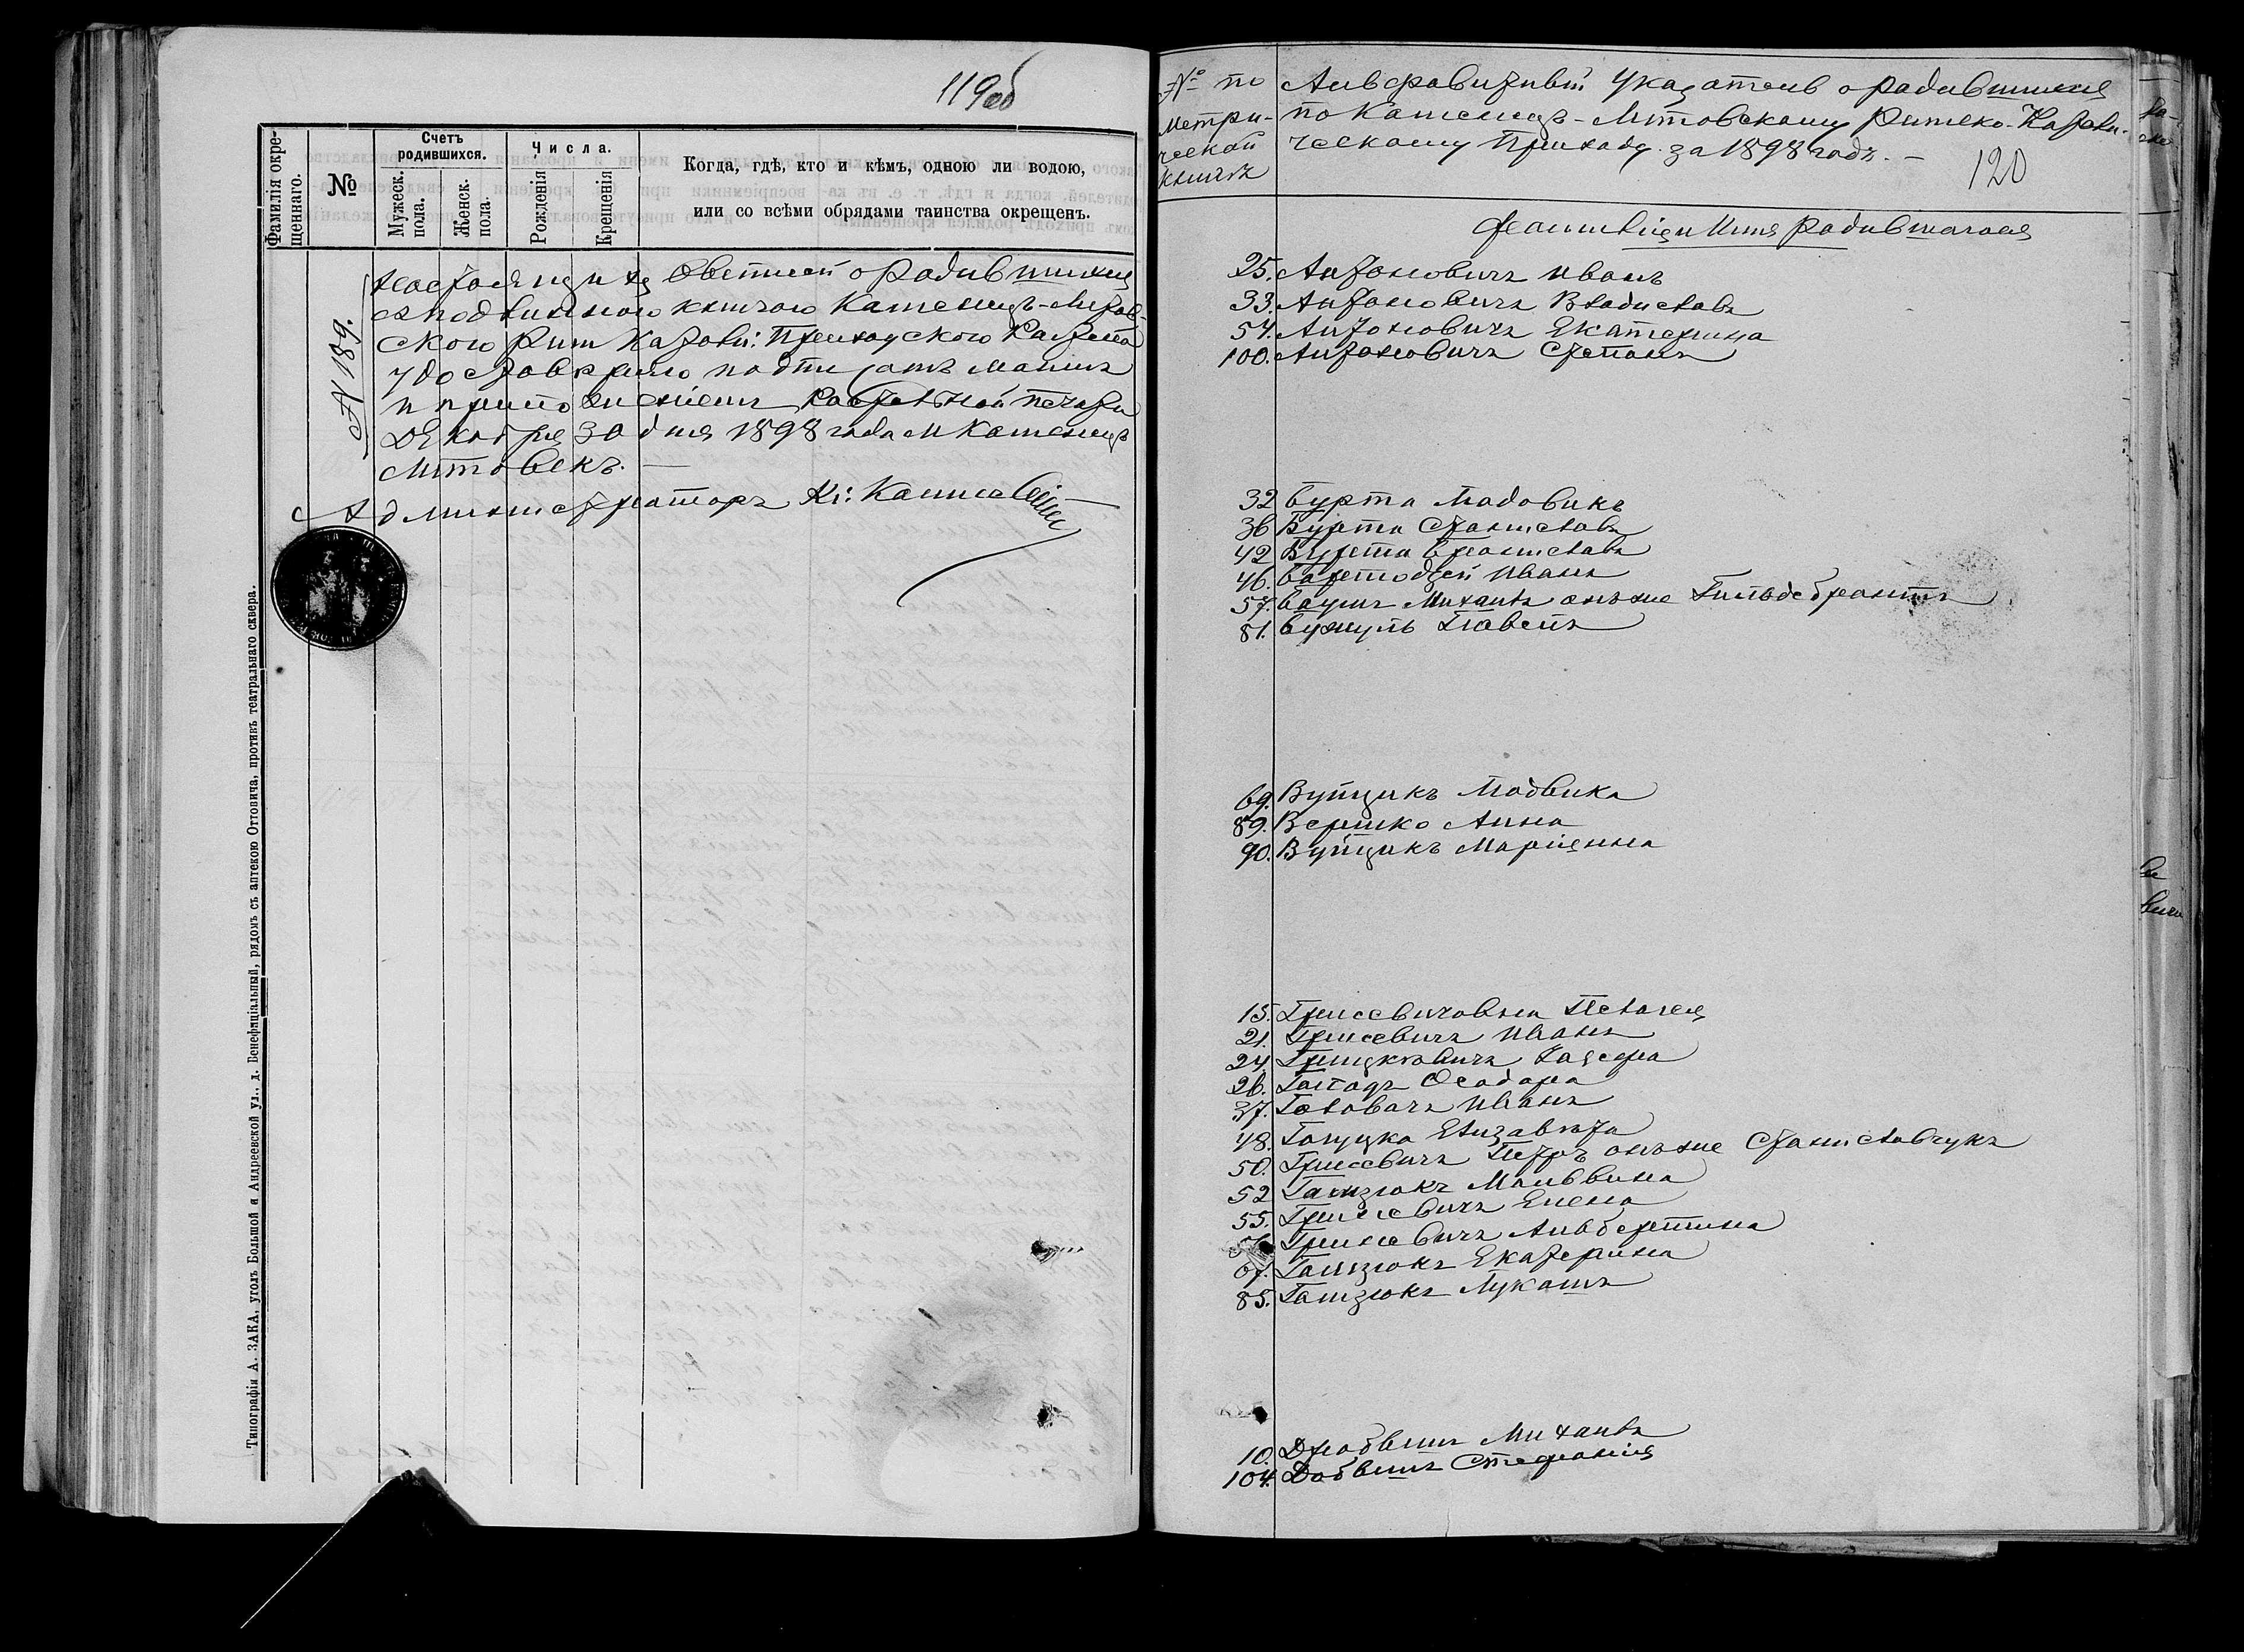 119об
Фамилія окрещеннаго.
№
Счетъ родившихся.
Мужеск. пола.
Женск. пола.
Числа.
Рожденія
Крещенія
Когда, гдѣ, кто и кѣмъ, одною ли водою,
или со всѣми обрядами таинства окрещенъ.
№ 189.
о родившихся
съ подлинною книгою Каменецъ-Литов-
ского Рим Катол: Приходского Костела
удостовѣряю подписомъ моимъ
и приложеніемъ Костельной печати
Декабря 30 дня 1898 года м Каменецъ
Литовскъ. —
Администраторъ Кс:
Типографія А. ЗАКА, уголъ Большой и Андреевской ул., д. Бенефиціальный, рядомъ съ аптекою Оттовича, противъ театральнаго сквера.
№ по Метрической книгѣ
Алфавитный Указатель о родившихся
по Каменецъ-Литовскому Римско-Католи-
ческому Приходу за 1898 годъ. —
120
Фамилія и Имя родившагося
25. Антоновичъ Иванъ
33. Антоновичъ Владиславъ
54. Антоновичъ Екатерина
100. Антоновичъ Степанъ
32 Бурта Людовикъ
36 Бурта Станиславъ
42 Бурта Брониславъ
46. Бартодзей Иванъ
57. Михаилъ онъ же Гильдебрантъ
81. Бужуль Павелъ
69. Вуйцикъ Людвика
89. Вершко Анна
90. Вуйцикъ Маріянна
15. Гриневичовна Пелагея
21. Гриневичъ Иванъ
24. Грицкевичъ
26. Феодора
37. Головачъ Иванъ
48. Галуцка Елизавета
50. Гриневичъ Петръ онъ же Станиславчукъ
52 Гамзюкъ Мальвина
55. Гриневичъ Елена
Гриневичъ Альбертина
67. Гамзюкъ Екатерина
85. Гамзюкъ Лукашъ
10. Михаилъ
104. Стефанія